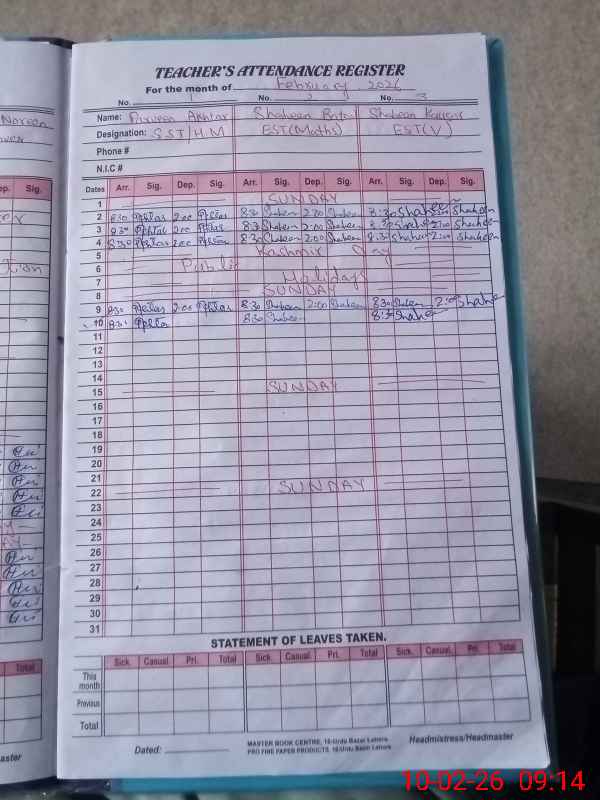 TEACHER'S ATTENDANCE REGISTER
For the month of February 2026
No. 1 No. 2 No. 3
Name: Parveen Akhtar Shaheen Shaheen Kausar
Designation: SST/H.M EST(Maths) EST(V)
Phone #
N.I.C #
Dates Arr. Sig. Dep. Sig. Arr. Sig. Dep. Sig. Arr. Sig. Dep. Sig.
1 SUNDAY
2 8:30 2:00 8:30 Shaheen 2:00 Shaheen 8:30 Shaheen 2:00 Shaheen
3 8:30 2:00 8:30 Shaheen 2:00 Shaheen 8:30 Shaheen 2:00 Shaheen
4 8:30 2:00 8:30 Shaheen 2:00 Shaheen 8:30 Shaheen 2:00 Shaheen
5 Kashmir Day
6 Public
7 Holidays
8 SUNDAY
9 8:30 2:00 8:30 Shaheen 2:00 Shaheen 8:30 Shaheen 2:00 Shaheen
10 8:30 8:30 Shaheen 8:30 Shaheen
11
12
13
14
15 SUNDAY
16
17
18
19
20
21
22 SUNDAY
23
24
25
26
27
28
29
30
31
STATEMENT OF LEAVES TAKEN.
Sick Casual Pri. Total Sick. Casual. Pri. Total Sick. Casual. Pri. Total
This month
Previous
Total
Dated:
MASTER BOOK CENTRE, 16-Urdu Bazar Lahore
PRO FINE PAPER PRODUCTS, 16-Urdu Bazar Lahore
Headmistress/Headmaster
Noreen
ep. Sig.
Total
aster
10-02-26 09:14